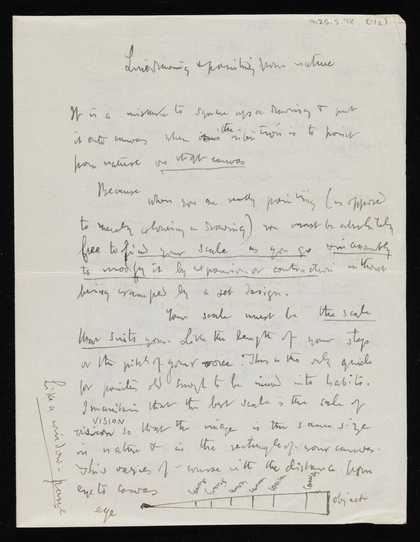 Linedrawing & painting from nature
It is a mistake to square up a drawing & put
it onto canvas when the intention is to paint
from nature on that canvas
Because
when you are really painting (as opposed
to merely colouring a drawing) you must be absolutely
free to find your scale as you go
to modify it by expansion or contraction without
being cramped by a set design.
Your scale must be the scale
that suits you. Like the length of your step
or the pitch of your voice. This is the only guide
for painters old enough to be in habits.
I maintain that the best scale is the scale of
VISION
vision so that the image is the same size
in nature & in the rectangle of your canvas.
This varies of course with the distance from
eye to canvas
eye
canvas
canvas
canvas
object
Like a window-pane